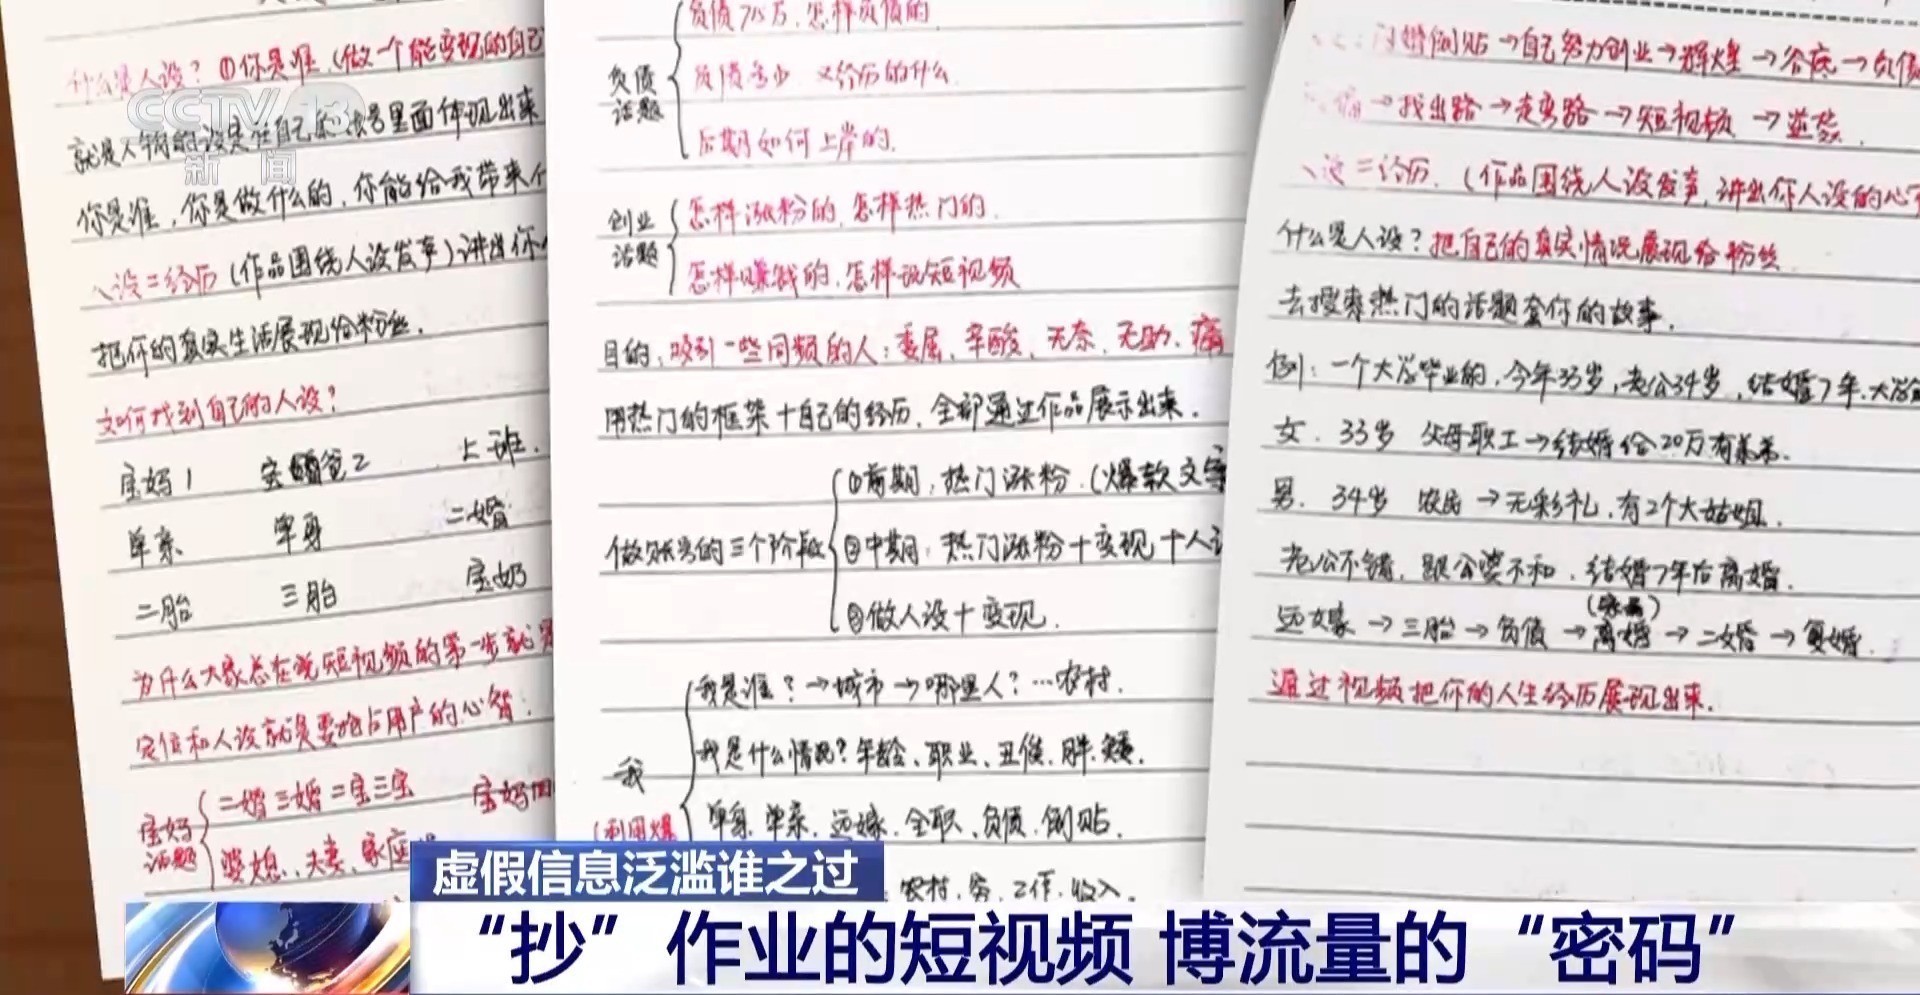 什么是人设？①你是谁（做一个能变现的自己
就是人物的设定在自己的账号里面体现出来
你是谁，你是做什么的，你能给我带来什
人设=经历（作品围绕人设发声）讲出你
把你的真实生活展现给粉丝.
如何找到自己的人设？
宝妈1 宝爸2 上班.
单亲 单身 二婚
二胎 三胎 宝奶
为什么大家总在说短视频的第一步就
定位和人设就是要抢占用户的心智:
宝妈话题 二婚 三婚 二宝三宝 宝妈
婆媳、夫妻、家庭
负债话题 负债715万, 怎样负债的
负债多少 又经历的什么
后期如何上岸的.
创业话题 怎样涨粉的, 怎样热门的.
怎样赚钱的, 怎样玩短视频
目的: 吸引一些同频的人: 委屈、辛酸、无奈、无助、痛
用热门的框架+自己的经历, 全部通过作品展示出来.
做账号的三个阶段 ①前期: 热门涨粉.(爆款文案
②中期: 热门涨粉+变现+人设
③做人设+变现.
我 我是谁?→城市→哪里人?…农村.
我是什么情况?年龄、职业、丑俊、胖、矮.
(利用爆 单身、单亲、远嫁、全职、负债、倒贴.
农村、务、工作、收入.
婚倒贴→自己努力创业→辉煌→谷底→负债
→找出路→走弯路→短视频→逆袭.
人设=经历.(作品围绕人设发声,讲出你人设的心
什么是人设?把自己的真实情况展现给粉丝
去搜索热门的话题套你的故事.
例: 一个大学毕业的,今年33岁,老公34岁,结婚7年,大学
女. 33岁 父母职工→结婚给20万有弟弟.
男. 34岁 农民→无彩礼,有2个大姑姐.
老公不错,跟公婆不和,结婚7年后离婚.
远嫁→三胎→负债→离婚→二婚→复婚.
通过视频把你的人生经历展现出来.
CCTV 13
新闻
虚假信息泛滥谁之过
“抄”作业的短视频 博流量的“密码”